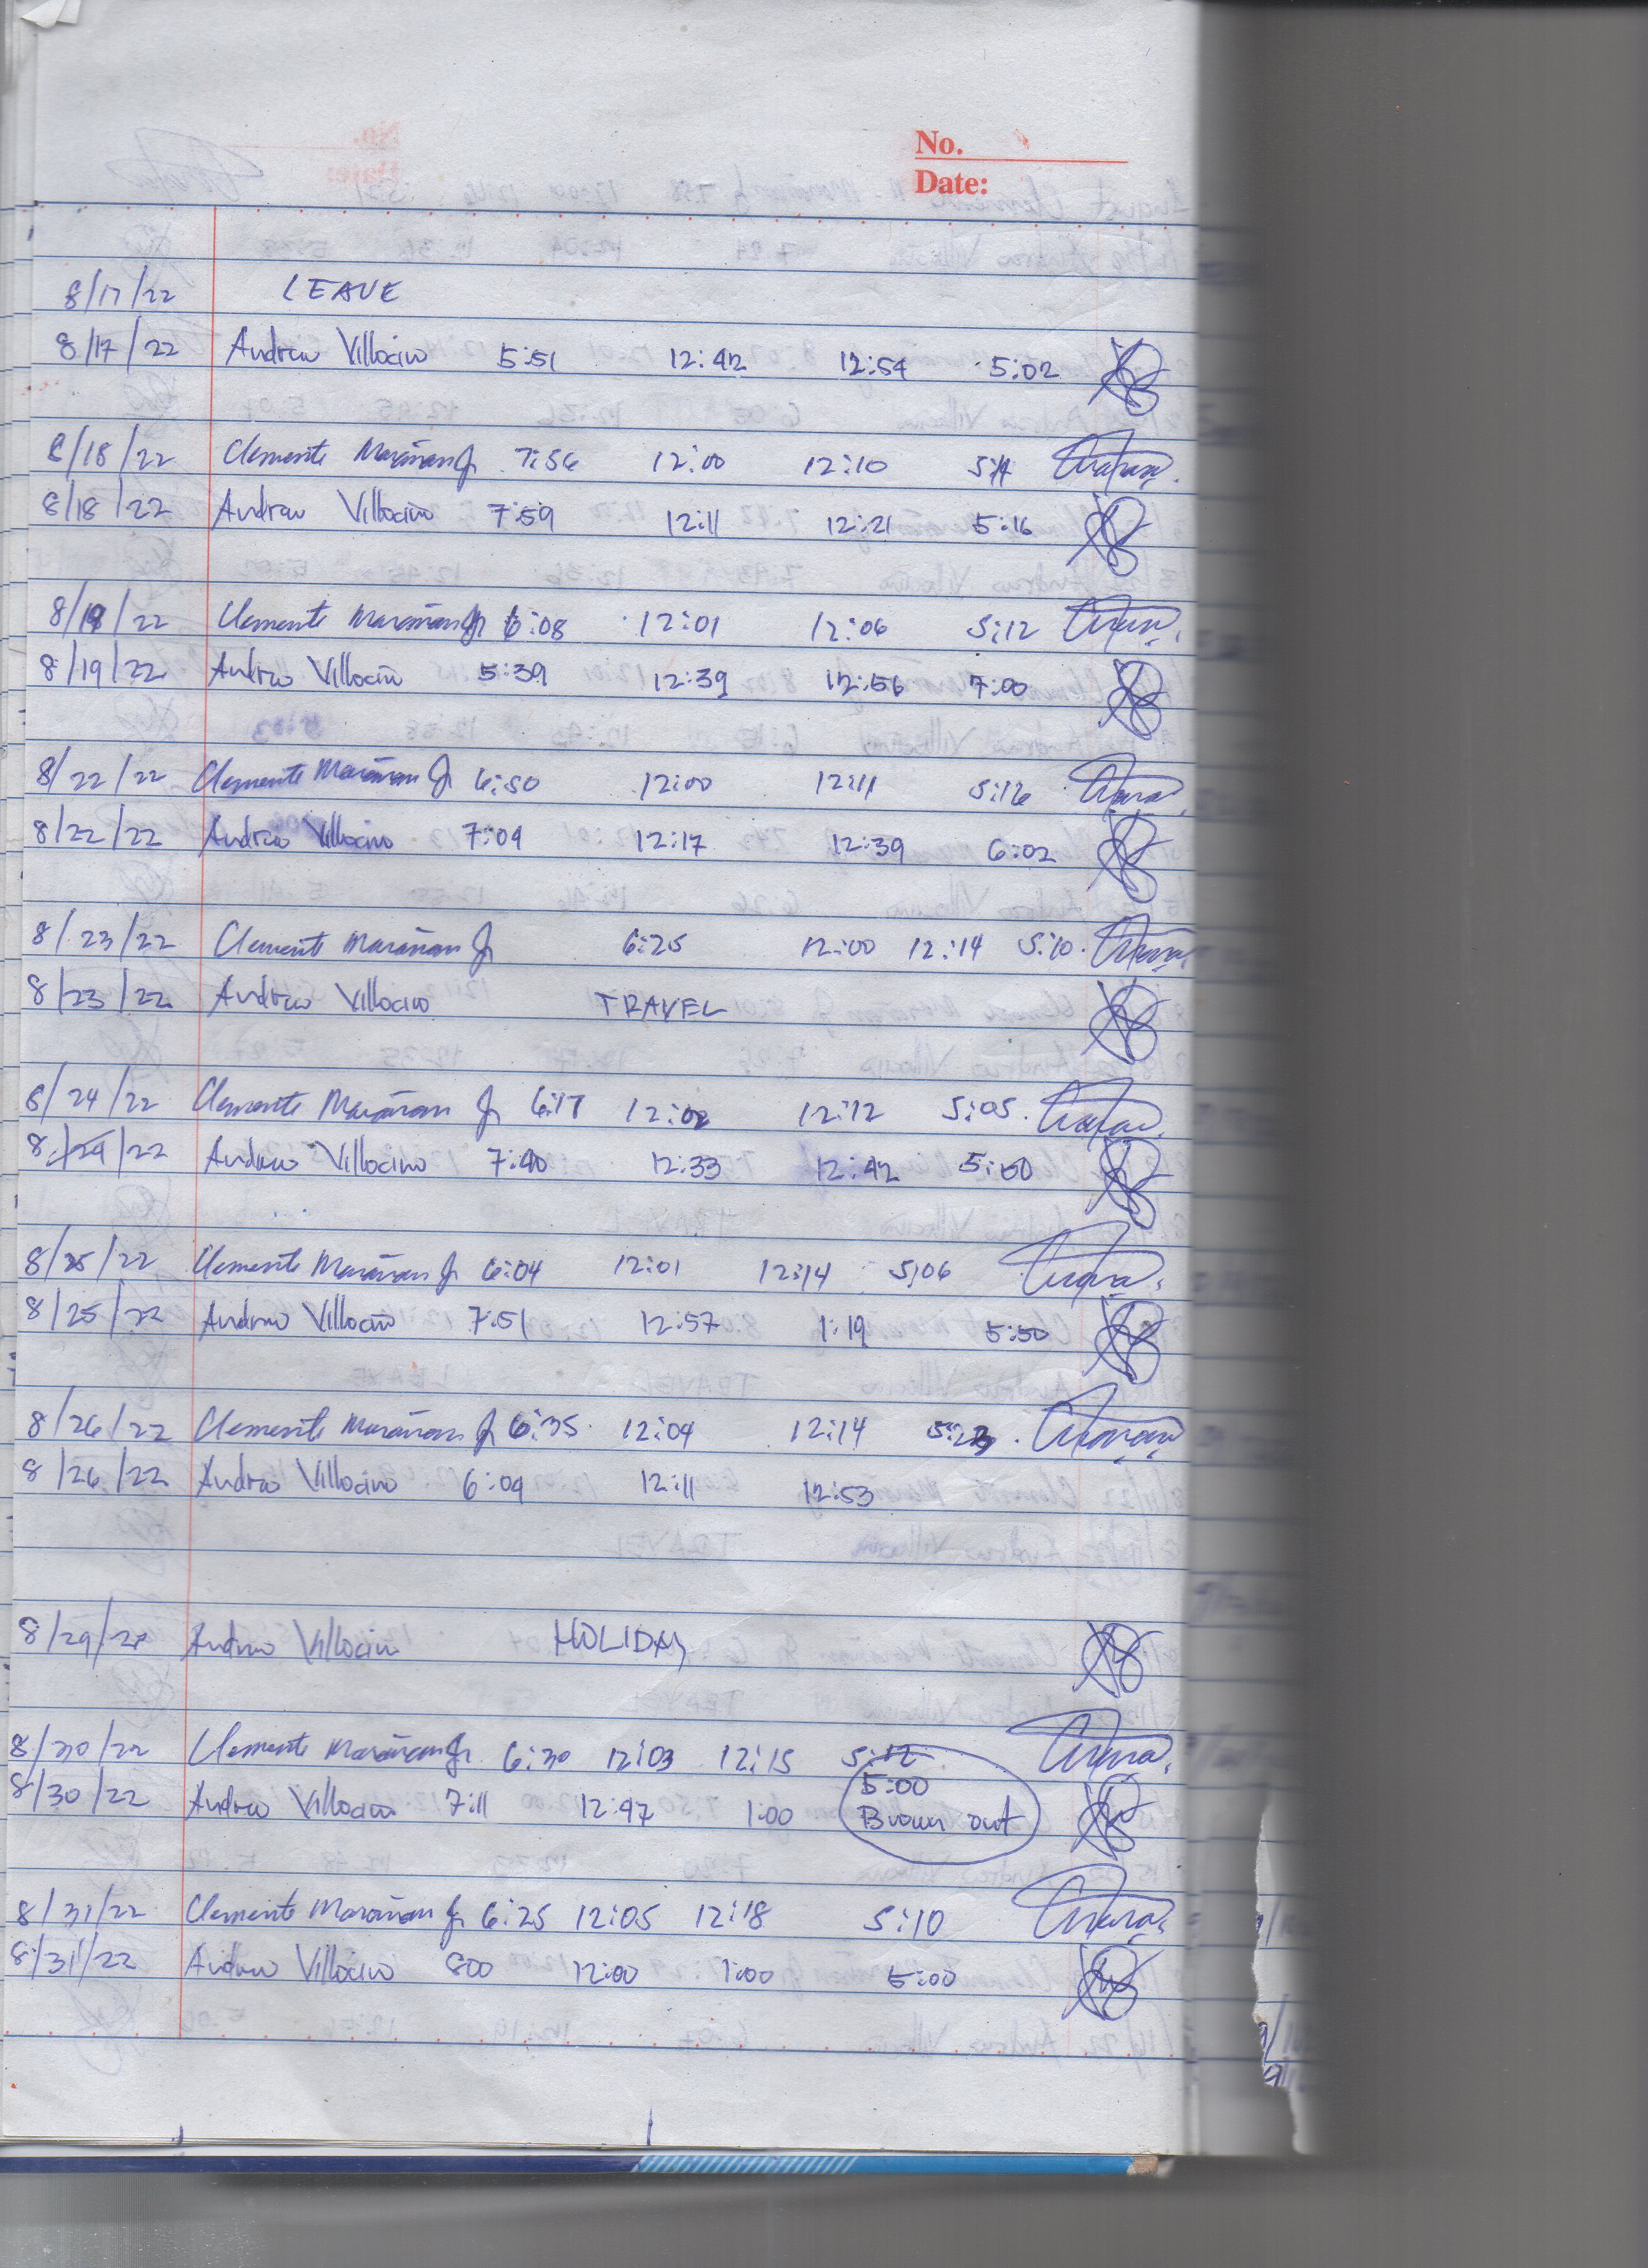 No.
Date:
8/17/22 LEAVE
8/17/22 Andrew Villocino 5:51 12:42 12:54 5:02
8/18/22 Clemente Marañan Jr 7:56 12:00 12:10
8/18/22 Andrew Villocino 7:59 12:11 12:21 5:16
8/19/22 Clemente Marañan Jr 6:08 12:01 12:06 5:12
8/19/22 Andrew Villocino 5:39 12:39 12:56 7:00
8/22/22 Clemente Marañan Jr 6:50 12:00 12:11 5:16
8/22/22 Andrew Villocino 7:09 12:17 12:39 6:02
8/23/22 Clemente Marañan Jr 6:25 12:00 12:14 5:10.
8/23/22 Andrew Villocino TRAVEL
8/24/22 Clemente Marañan Jr 6:17 12:02 12:12 5:05.
8/24/22 Andrew Villocino 7:40 12:33 12:42 5:50
8/25/22 Clemente Marañan Jr 6:04 12:01 12:14 5:06
8/25/22 Andrew Villocino 7:51 12:57 1:19 5:50
8/26/22 Clemente Marañan Jr 6:35 12:04 12:14 5:23.
8/26/22 Andrew Villocino 6:09 12:11 12:53
8/29/22 Andrew Villocino HOLIDAY
8/30/22 Clemente Marañan Jr 6:30 12:03 12:15 5:12
8/30/22 Andrew Villocino 7:11 12:47 1:00 5:00 Brown out
8/31/22 Clemente Marañan Jr 6:25 12:05 12:18 5:10
8/31/22 Andrew Villocino 800 12:00 1:00 5:00